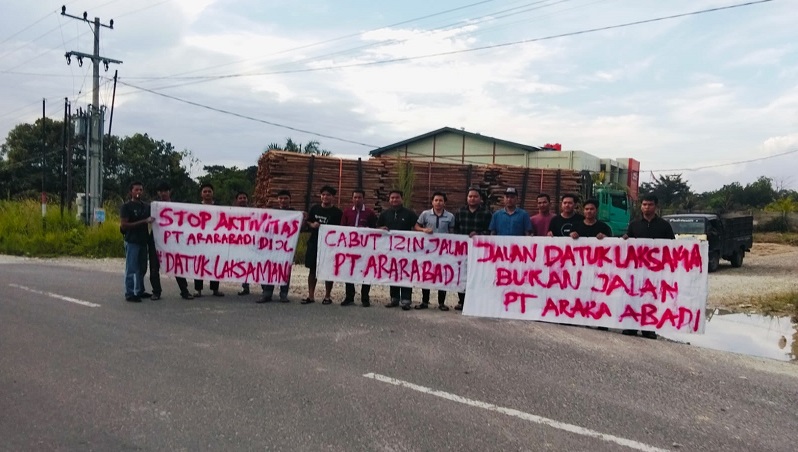 STOP AKTIVITAS
PT ARARABADI DI JL
DATUK LAKSAMANA
CABUT IZIN, JALM
PT. ARARABADI
JALAN DATUK LAKSAMANA
BUKAN JALAN
PT ARARA ABADI